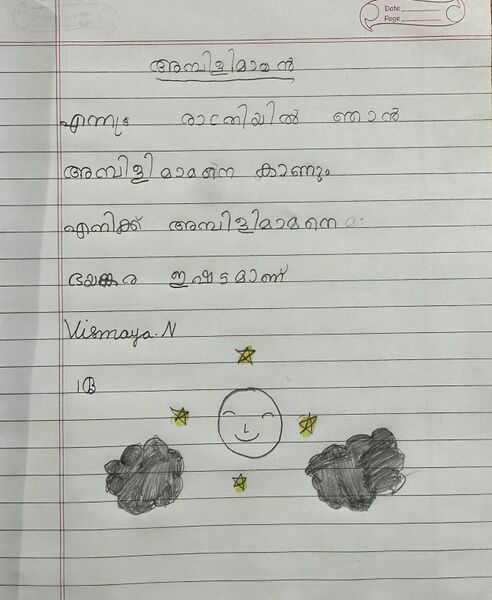 Date
Page
അമ്പിളിമാമൻ
എന്നും രാത്രിയിൽ ഞാൻ
അമ്പിളിമാമനെ കാണും
എനിക്ക് അമ്പിളിമാമനെ
ഭയങ്കര ഇഷ്ടമാണ്
Vismaya.N
1B